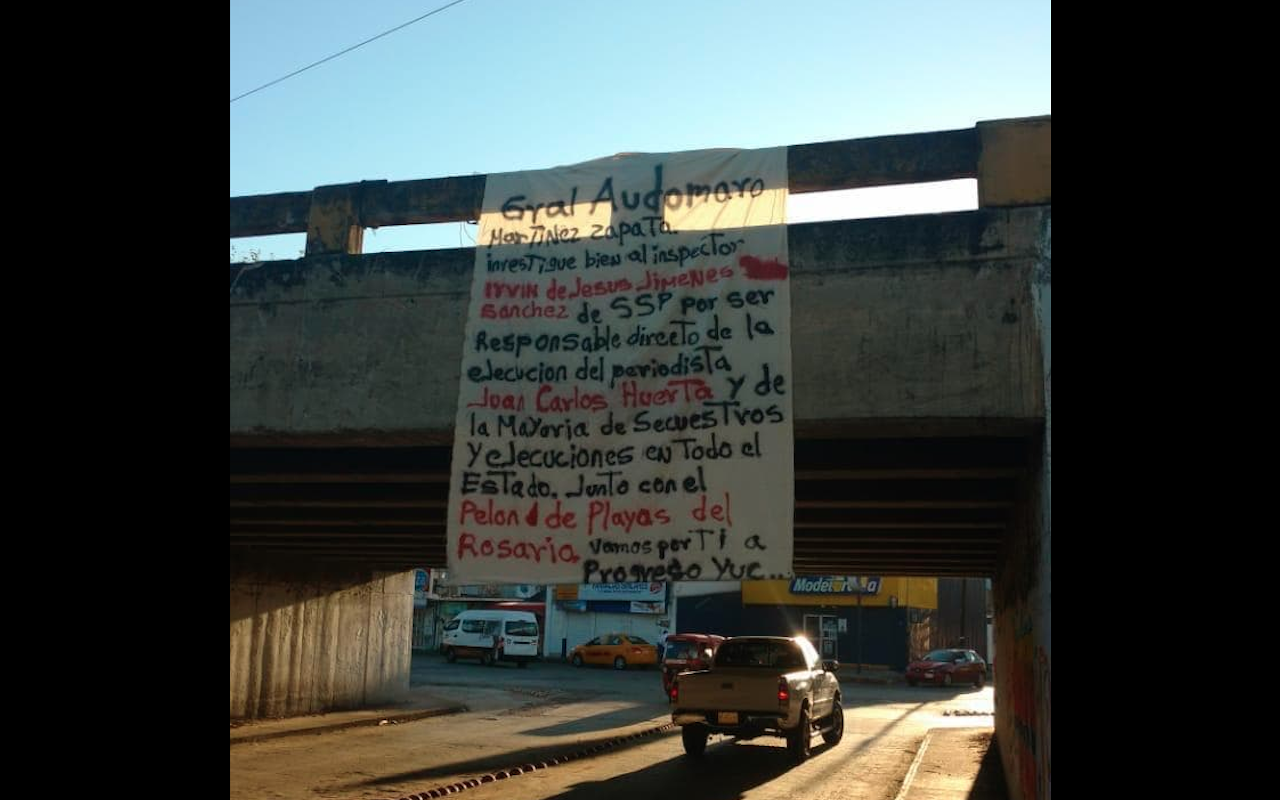 Gral Audomaro
MarTiNez zapaTa
invesTigue bien al inspecTor
IYVIN de Jesus Jimenes
Sanchez de SSP por ser
Responsable direcTo de la
ejecucion del periodisTa
Juan Carlos HuerTa y de
la Mayoria de SecuesTros
Y ejecuciones en Todo el
EsTado. JunTo con el
Pelon de Playas del
Rosario. Vamos por Ti a
Progreso Yuc...
Modelorama